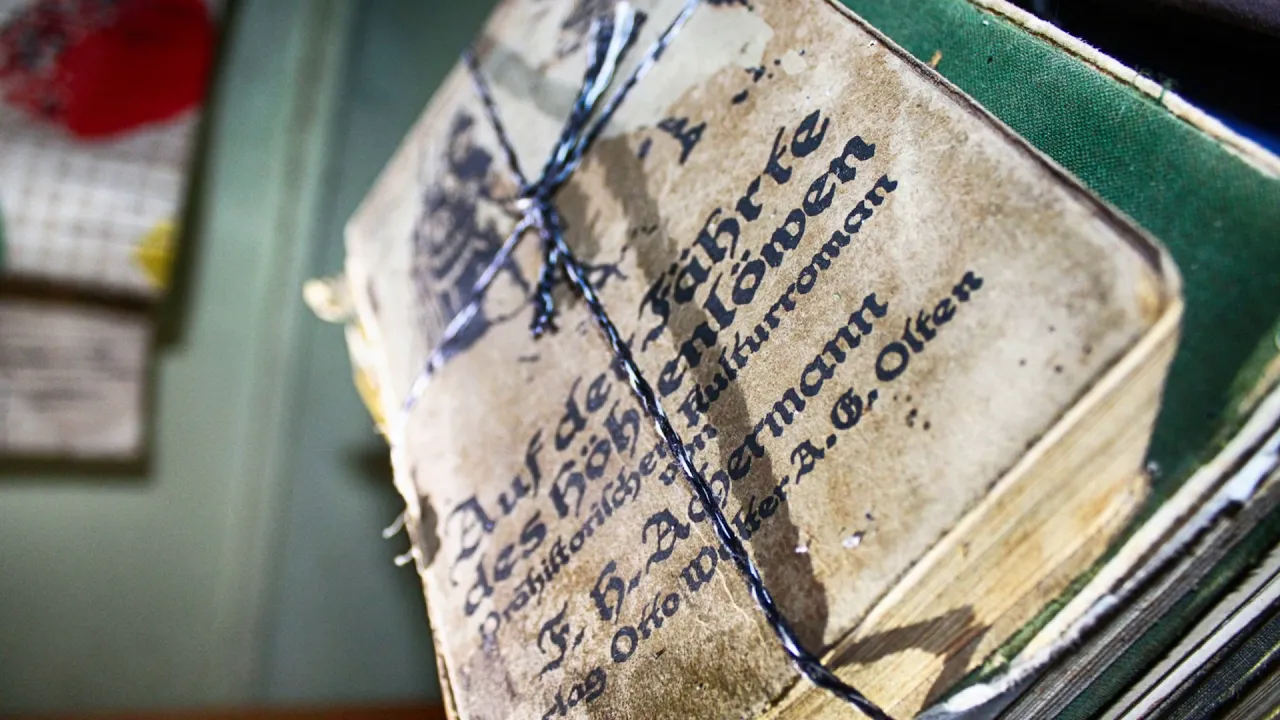 Auf der Fährte
des Höhlenlöwen
Prähistorischer Kulturroman
von
F. H. Achermann
lag Otto Walter A.G. Olten